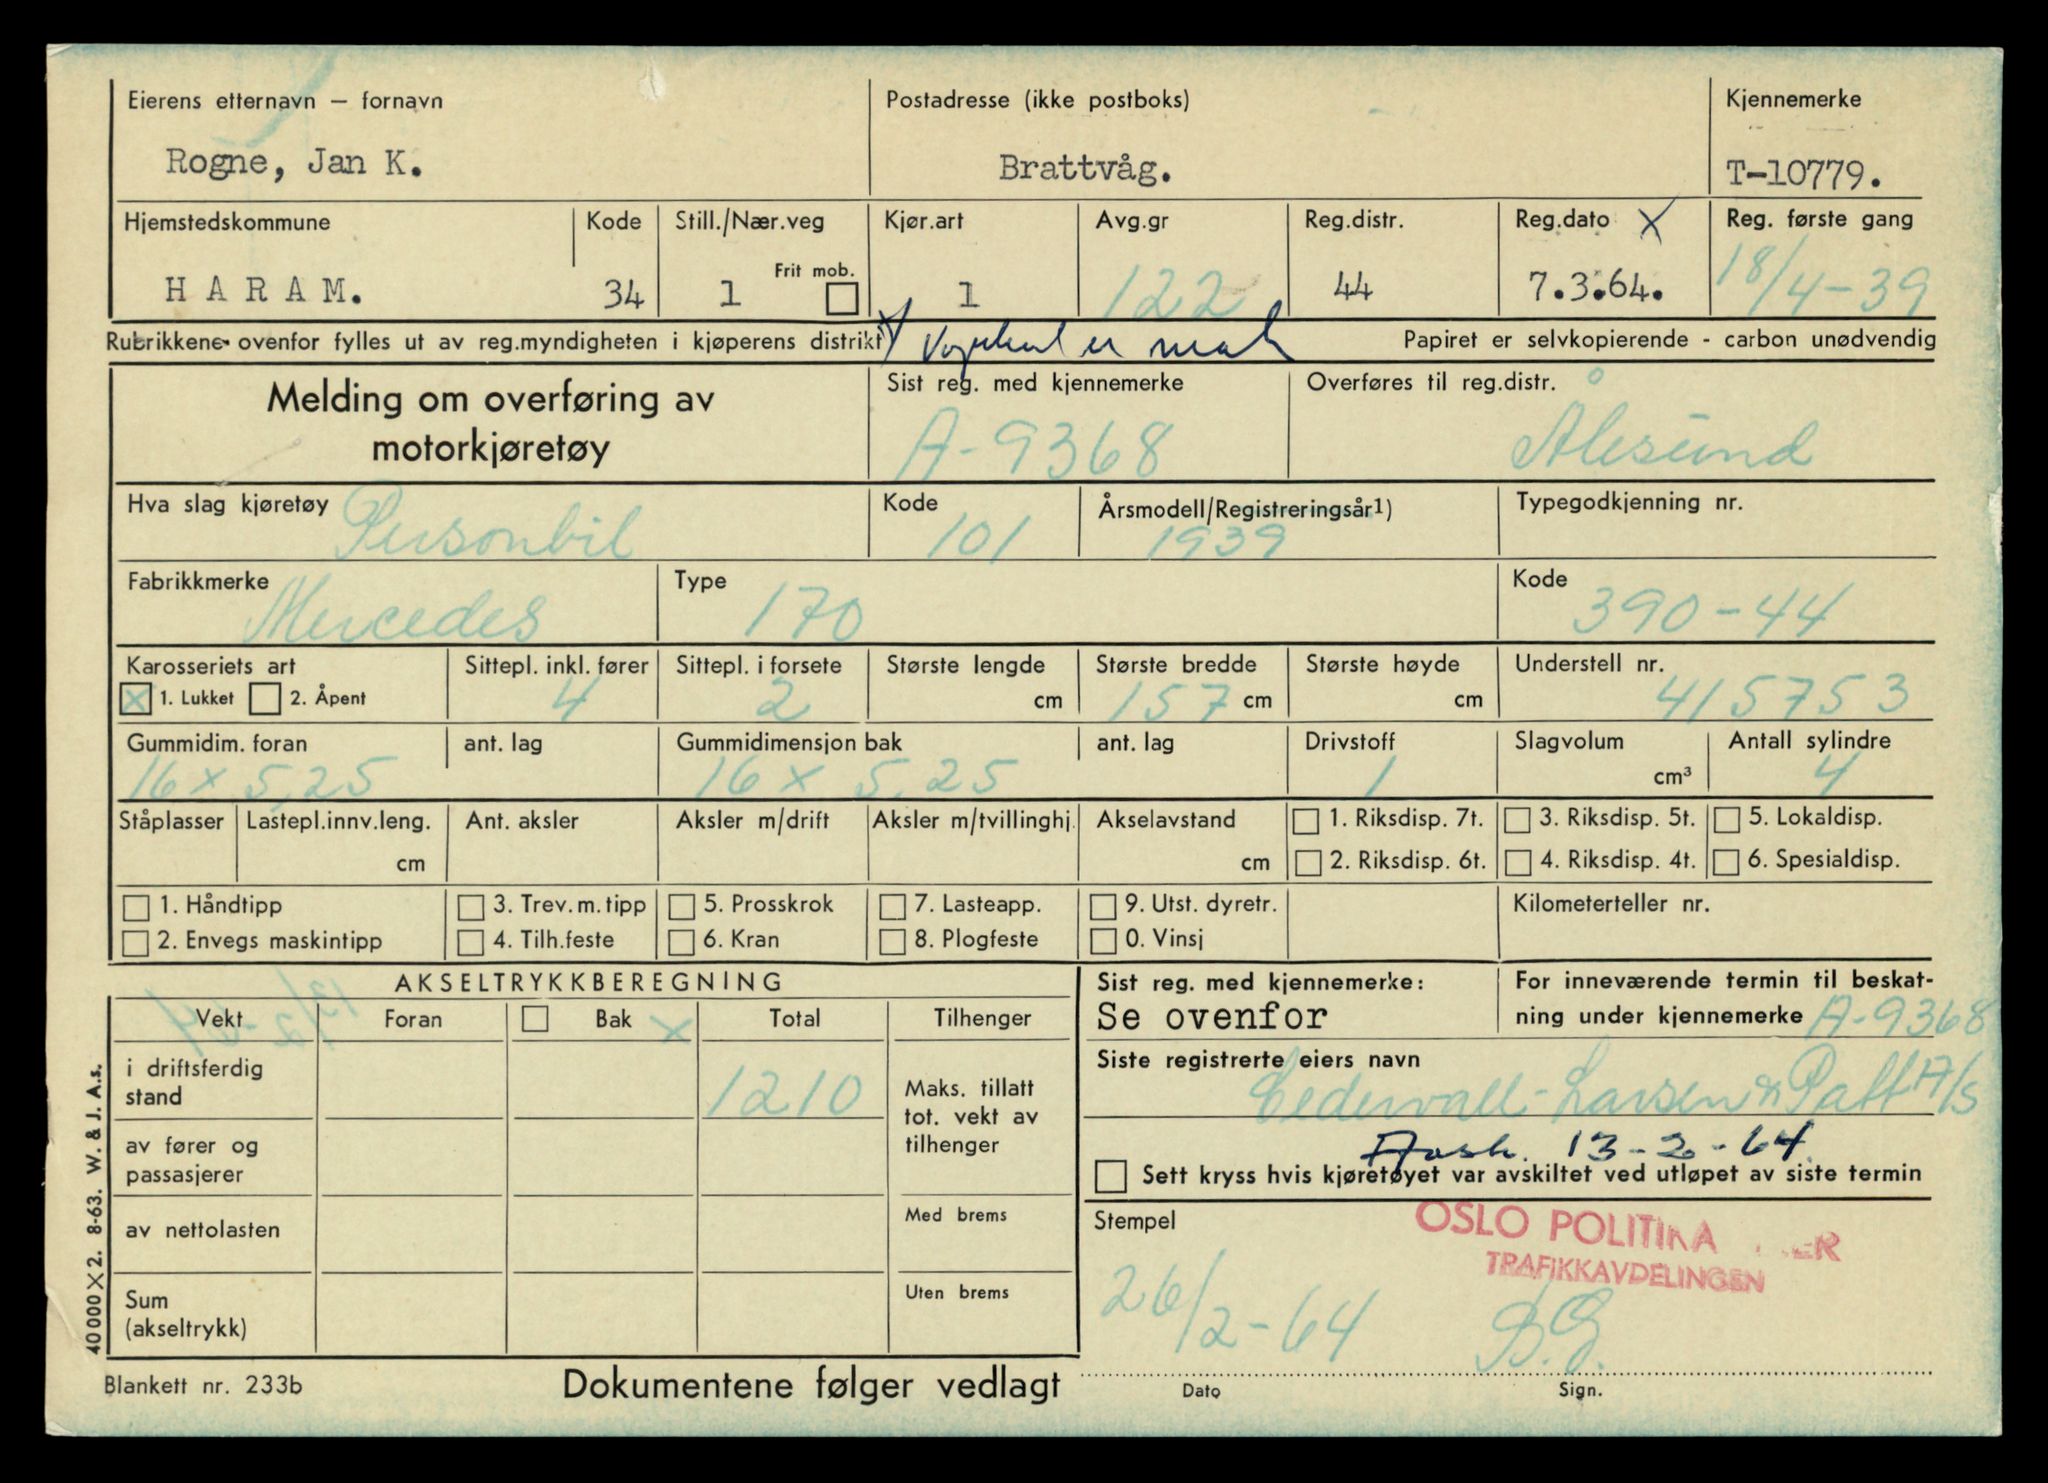 Eierens etternavn — fornavn
Postadresse (ikke postboks)
Kjennemerke
Rogne, Jan K.
Brattvåg.
T-10779.
Hjemstedskommune
Kode
Still./Nær.veg
Kjør.art
Avg.gr
Reg.distr.
Reg.dato X
Reg. første gang
HARAM.
34
1
Frit mob.
1
122
44
7.3.64.
18/4-39
Rubrikkene ovenfor fylles ut av reg.myndigheten i kjøperens distrikt
Papiret er selvkopierende - carbon unødvendig
Melding om overføring av
motorkjøretøy
Sist reg. med kjennemerke
A-9368
Overføres til reg.distr.
Ålesund
Hva slag kjøretøy
Personbil
Kode
101
Årsmodell/Registreringsår1)
1939
Typegodkjenning nr.
Fabrikkmerke
Mercedes
Type
170
Kode
390-44
Karosseriets art
X 1. Lukket 2. Åpent
Sittepl. inkl. fører
4
Sittepl. i forsete
2
Største lengde
cm
Største bredde
157 cm
Største høyde
cm
Understell nr.
415753
Gummidim. foran
16 x 5,25
ant. lag
Gummidimensjon bak
16 x 5,25
ant. lag
Drivstoff
1
Slagvolum
cm³
Antall sylindre
4
Ståplasser
Lastepl.innv.leng.
cm
Ant. aksler
Aksler m/drift
Aksler m/tvillinghj.
Akselavstand
cm
1. Riksdisp. 7t.
3. Riksdisp. 5t.
5. Lokaldisp.
2. Riksdisp. 6t.
4. Riksdisp. 4t.
6. Spesialdisp.
1. Håndtipp
3. Trev. m. tipp
5. Prosskrok
7. Lasteapp.
9. Utst. dyretr.
Kilometerteller nr.
2. Envegs maskintipp
4. Tilh.feste
6. Kran
8. Plogfeste
0. Vinsj
AKSELTRYKKBEREGNING
Vekt
Foran
Bak X
Total
Tilhenger
i driftsferdig
stand
1210
Maks. tillatt
tot. vekt av
tilhenger
av fører og
passasjerer
av nettolasten
Med brems
Sum
(akseltrykk)
Uten brems
Sist reg. med kjennemerke:
Se ovenfor
For inneværende termin til beskat-
ning under kjennemerke A-9368
Siste registrerte eiers navn
Cedervall-Larsen & A/S
13-2-64
Sett kryss hvis kjøretøyet var avskiltet ved utløpet av siste termin
Stempel
OSLO
TRAFIKKAVDELINGEN
26/2-64
Dato
Sign.
40 000 X 2. 8-63. W. & J. A.s.
Blankett nr. 233b
Dokumentene følger vedlagt